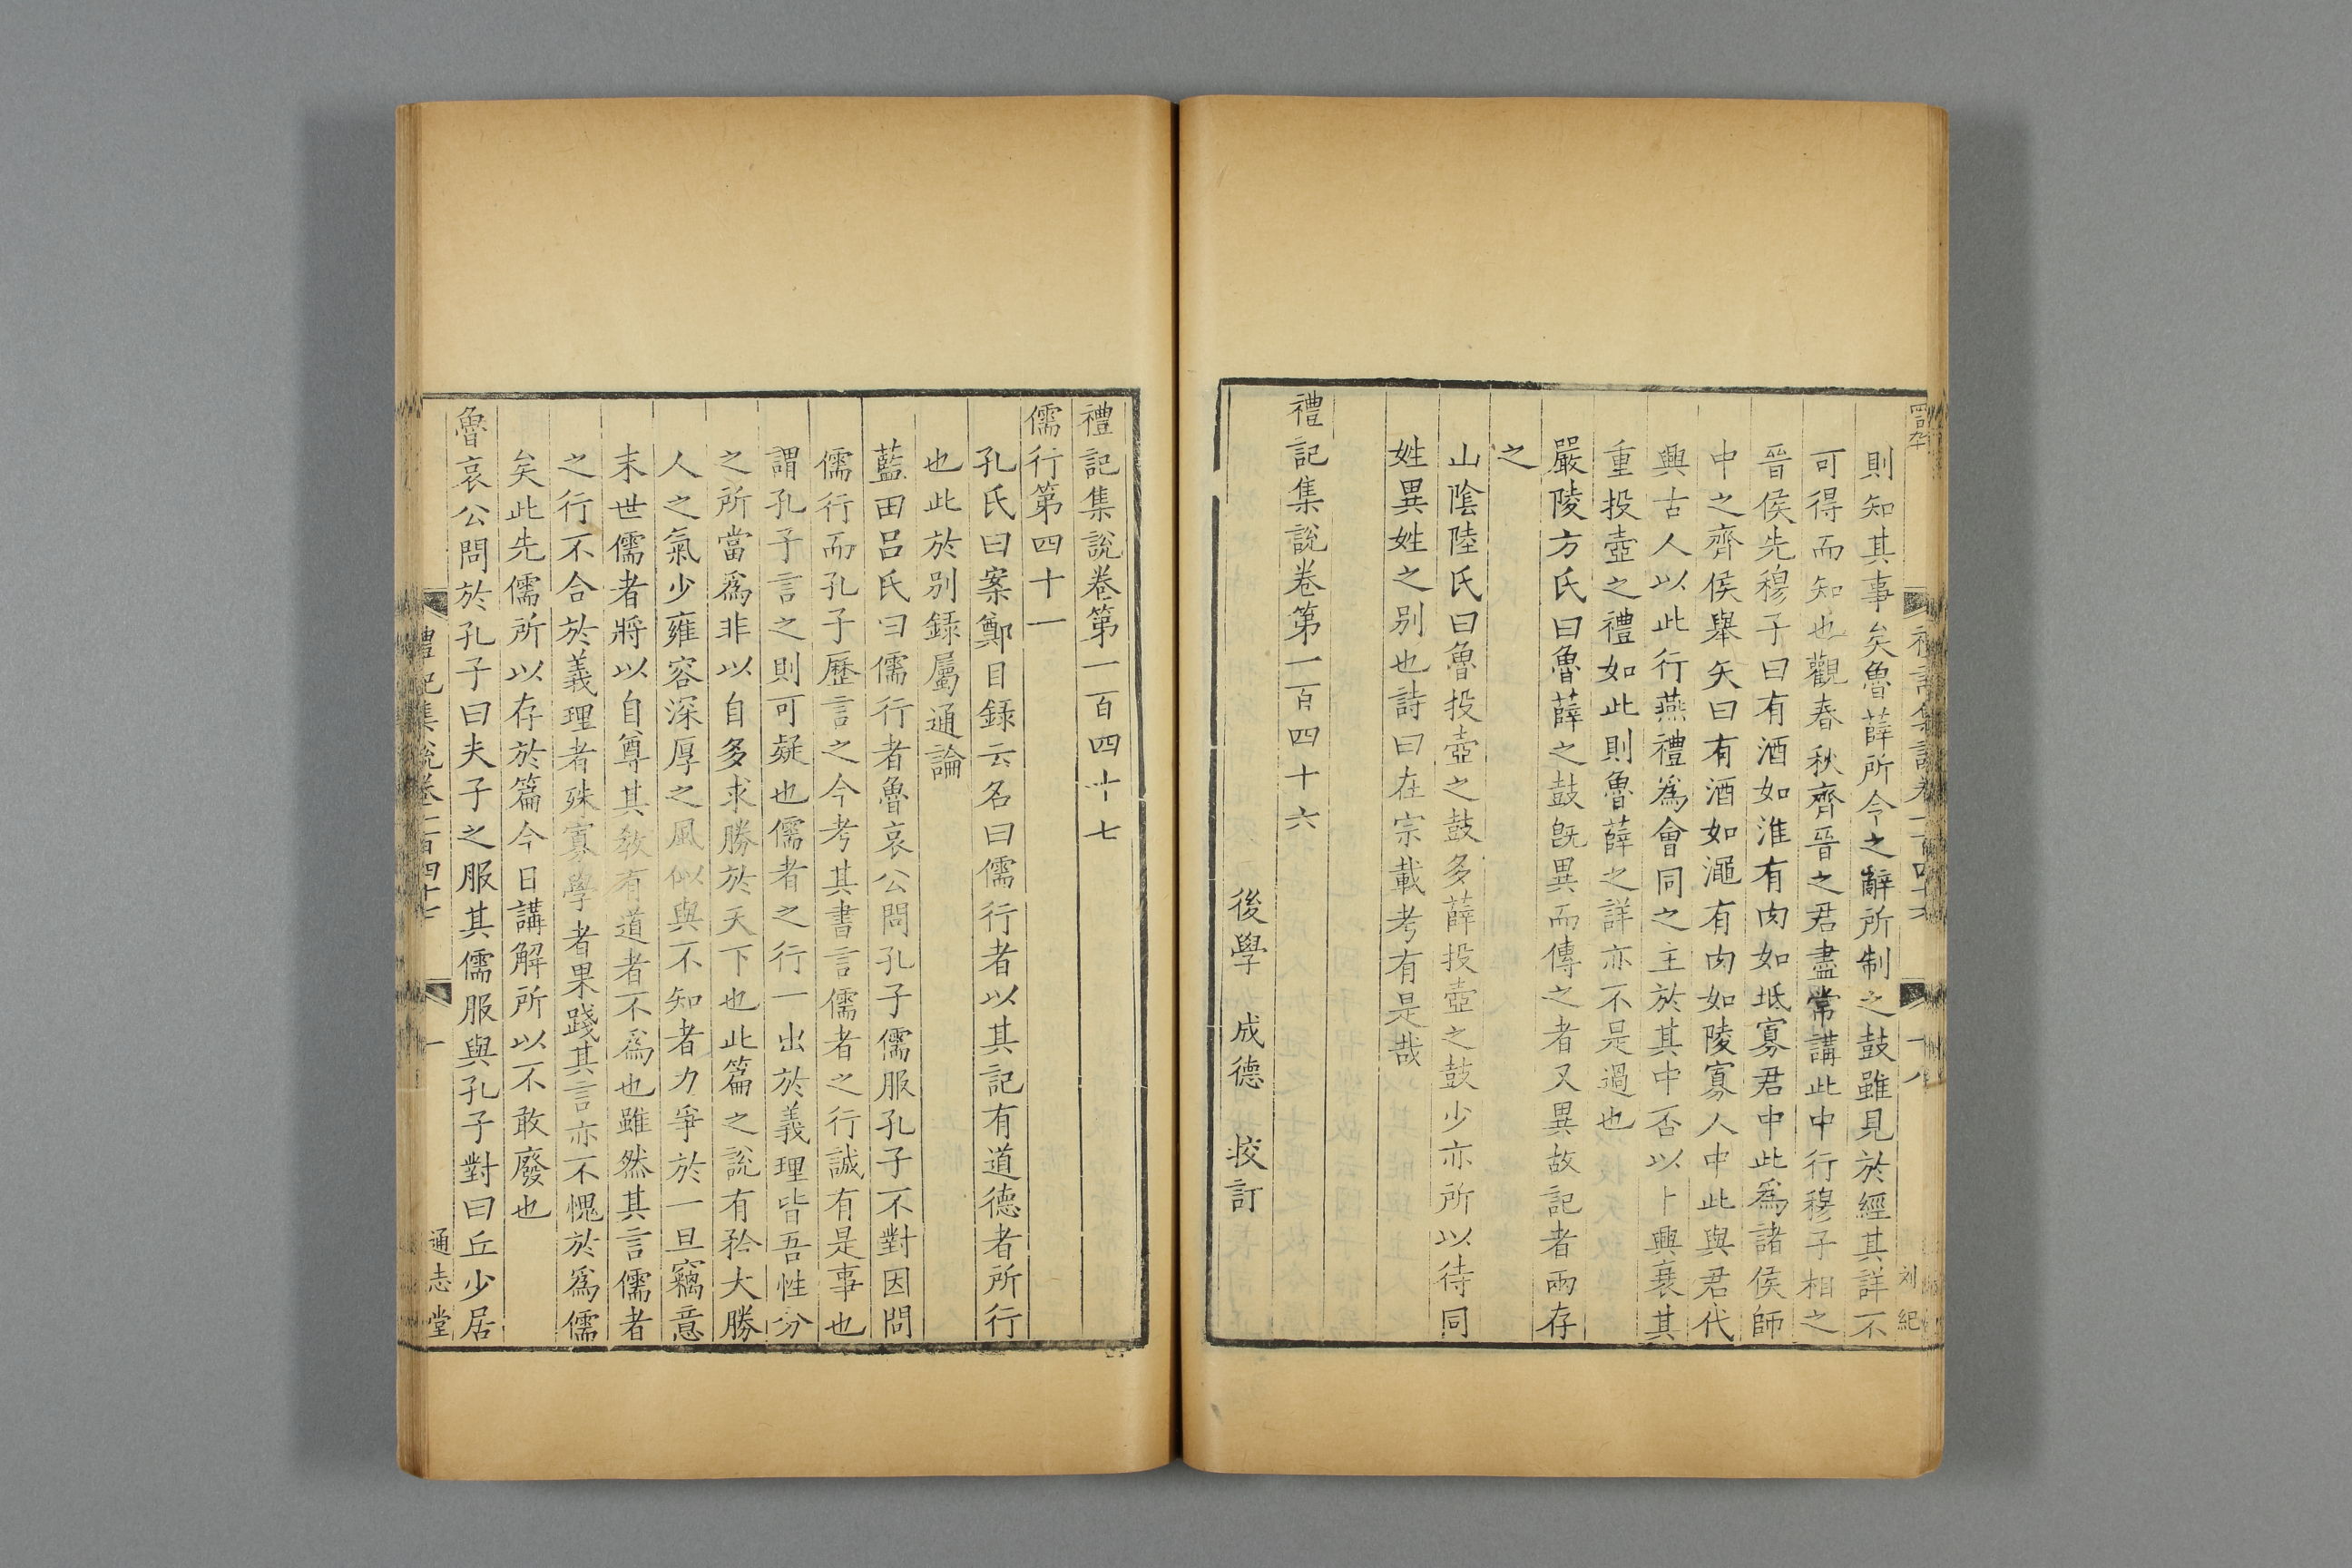 則知其事矣魯薛所令之辭所制之鼓雖見於經其詳不
可得而知也觀春秋齊晉之君盡常講此中行穆子相之
晉侯先穆子曰有酒如淮有肉如坻寡君中此為諸侯師
中之齊侯舉矢曰有酒如澠有肉如陵寡人中此與君代
興古人以此行燕禮為會同之主於其中否以卜興衰其
重投壺之禮如此則魯薛之詳亦不是過也
嚴陵方氏曰魯薛之鼓旣異而傳之者又異故記者兩存
之
山陰陸氏曰魯投壺之鼓多薛投壺之鼓少亦所以待同
姓異姓之别也詩曰在宗載考有是哉
禮記集說卷第一百四十六
後學 成德 挍訂
禮記集說卷第一百四十七
儒行第四十一
孔氏曰案鄭目録云名曰儒行者以其記有道德者所行
也此於别録屬通論
藍田呂氏曰儒行者魯哀公問孔子儒服孔子不對因問
儒行而孔子歷言之今考其書言儒者之行誠有是事也
謂孔子言之則可疑也儒者之行一出於義理皆吾性分
之所當為非以自多求勝於天下也此篇之說有矜大勝
人之氣少雍容深厚之風似與不知者力爭於一旦竊意
末世儒者將以自尊其教有道者不為也雖然其言儒者
之行不合於義理者殊寡學者果踐其言亦不愧於為儒
矣此先儒所以存於篇今日講解所以不敢廢也
魯哀公問於孔子曰夫子之服其儒服與孔子對曰丘少居
禮記集說卷一百四十七
一
通志堂